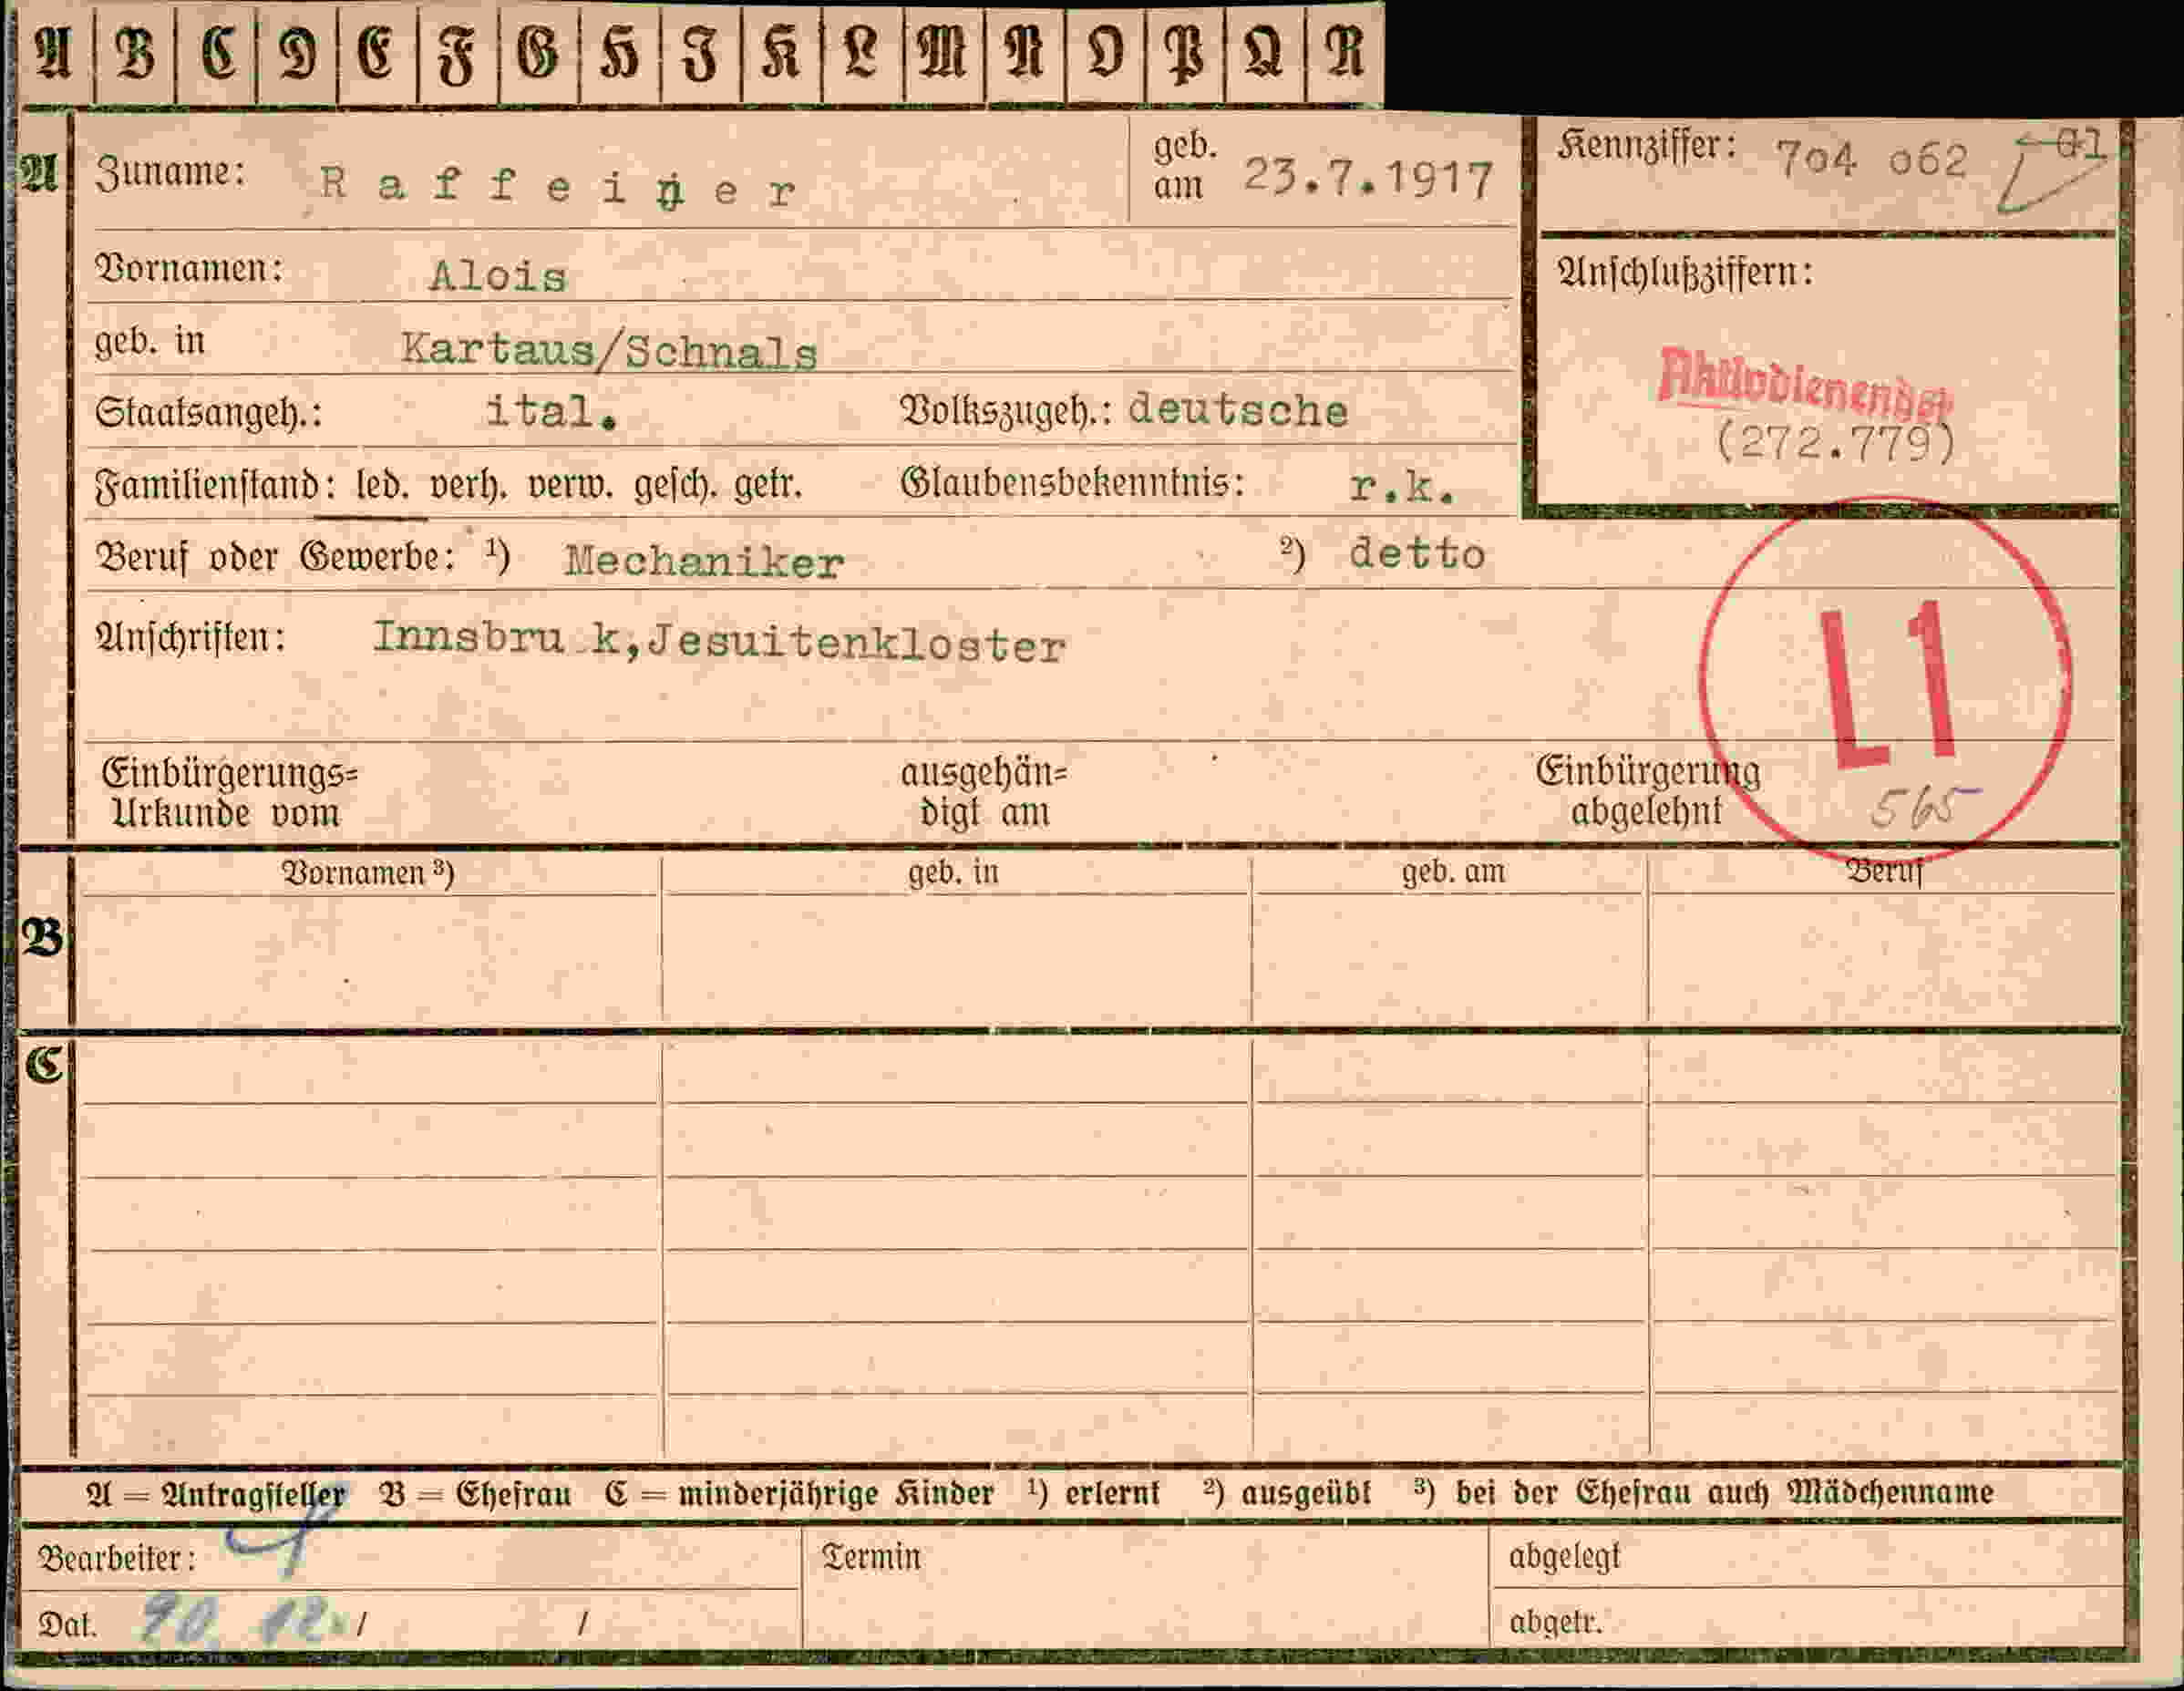 A B C D E F G H J K L M N O P Q R
A Zuname: Raffeiner geb. am 23.7.1917
Kennziffer: 704 062
Vornamen: Alois
Anschlußziffern:
geb. in Kartaus/Schnals
Aktivdienende
Staatsangeh.: ital. Volkszugeh.: deutsche
(272.779)
Familienstand: led. verh. verw. gesch. getr. Glaubensbekenntnis: r.k.
Beruf oder Gewerbe: ¹) Mechaniker ²) detto
Anschriften: Innsbru k,Jesuitenkloster
L1
Einbürgerungs= Urkunde vom ausgehän= digt am Einbürgerung abgelehnt 565
B Vornamen ³) geb. in geb. am Beruf
C
A = Antragsteller B = Ehefrau C = minderjährige Kinder ¹) erlernt ²) ausgeübt ³) bei der Ehefrau auch Mädchenname
Bearbeiter: Termin abgelegt
Dat. / / abgetr.